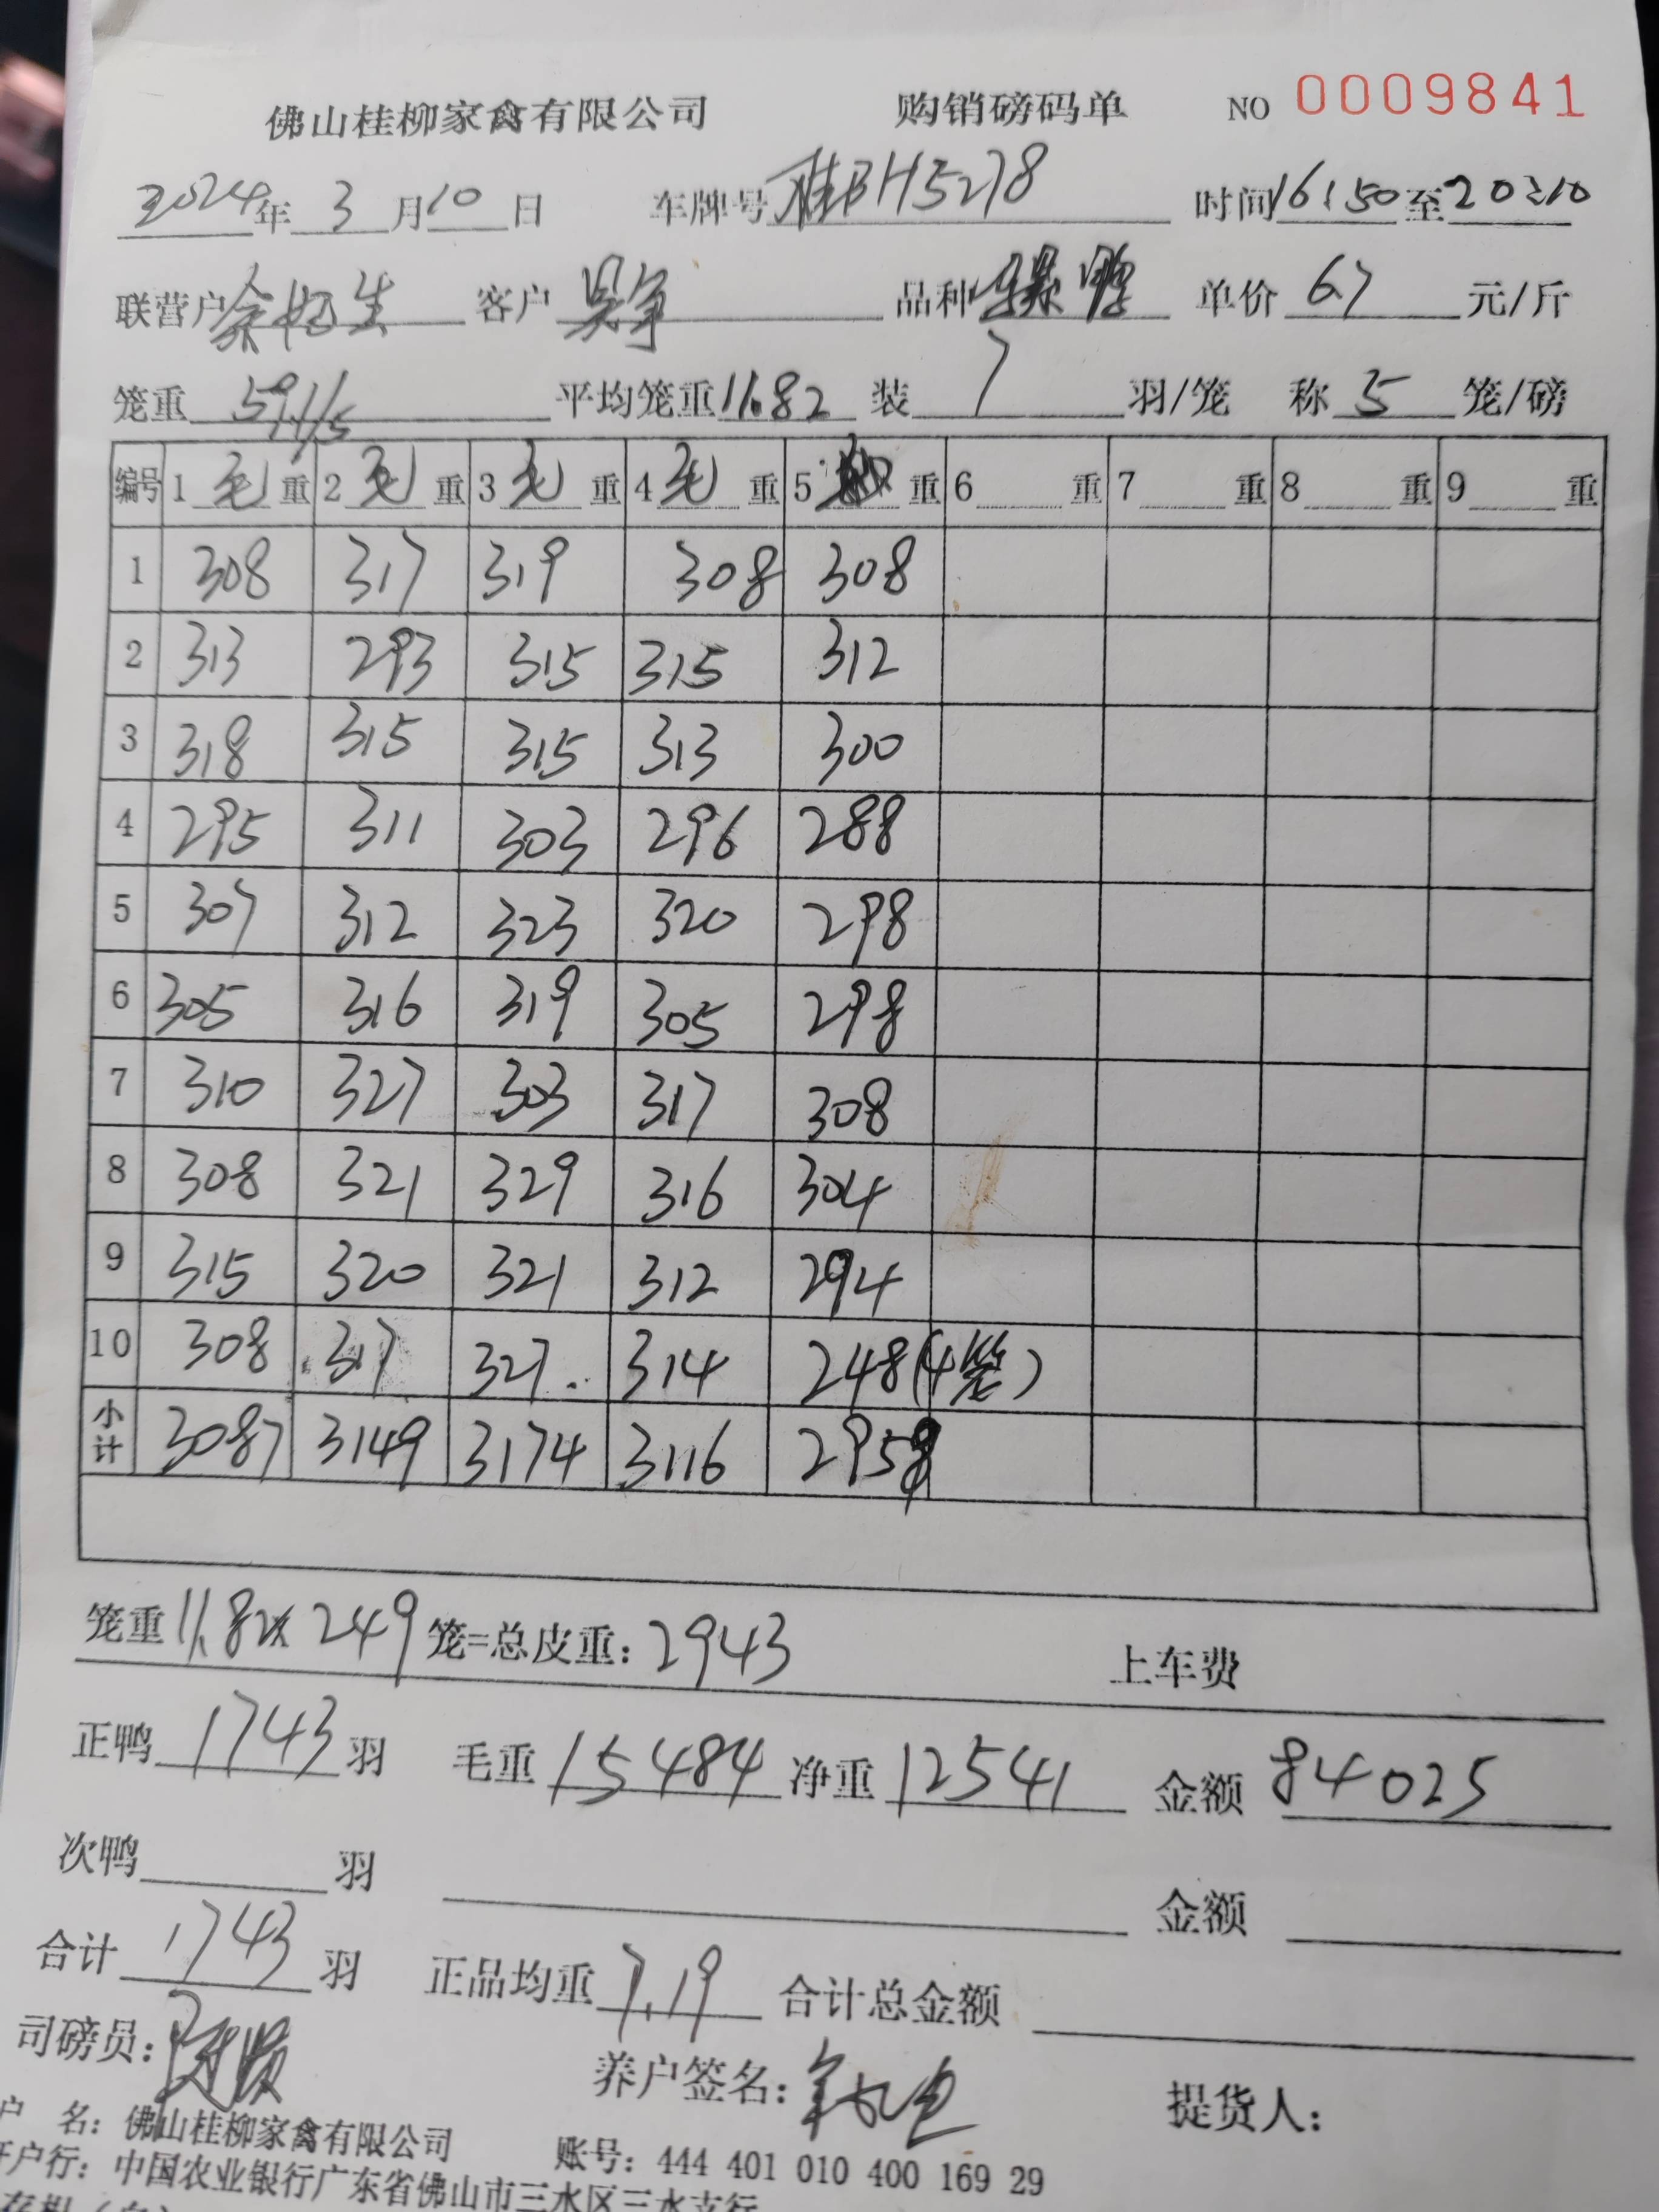 佛山桂柳家禽有限公司 购销磅码单 NO 0009841
2024年 3 月 10 日 车牌号 桂BH5278 时间 16:50 至 20:10
联营户 客户 吴军 品种 骡鸭 单价 6.7 元/斤
笼重 59.1/5 平均笼重 11.82 装 7 羽/笼 称 5 笼/磅
编号 1 毛 重 2 毛 重 3 毛 重 4 毛 重 5 重 6 重 7 重 8 重 9 重
1 308 317 319 308 308
2 313 293 315 315 312
3 318 315 315 313 300
4 295 311 303 296 288
5 307 312 323 320 298
6 305 316 319 305 298
7 310 327 303 317 308
8 308 321 329 316 304
9 315 320 321 312 294
10 308 317 327 314 248(4笼)
小计 3087 3149 3174 3116 2958
笼重 11.82x 249 笼=总皮重: 2943 上车费
正鸭 1743 羽 毛重 15484 净重 12541 金额 84025
次鸭 羽 金额
合计 1743 羽 正品均重 7.19 合计总金额
司磅员: 养户签名: 提货人:
户 名: 佛山桂柳家禽有限公司 账号: 444 401 010 400 169 29
开户行: 中国农业银行广东省佛山市三水区三水支行